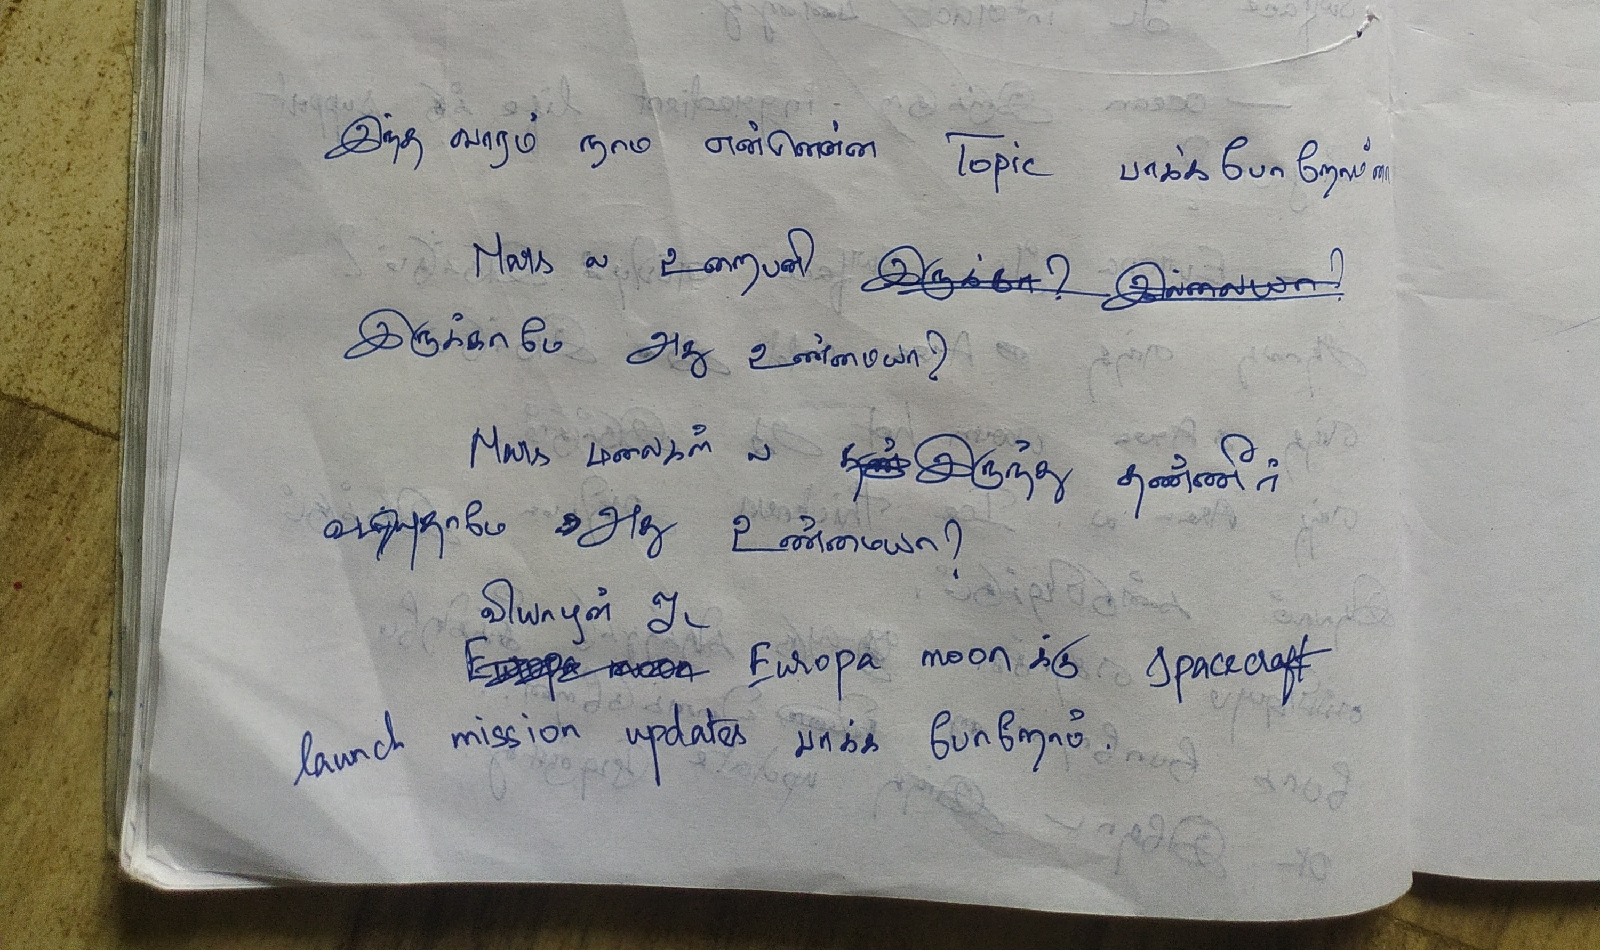 இந்த வாரம் நாம என்னென்ன Topic பாக்க போறோம்னா
Mars ல உறைபனி இருக்கா? இல்லையா?
இருக்காமே அது உண்மையா?
Mars மலைகள் ல இருந்து தண்ணீர்
வருதாமே அது உண்மையா?
வியாழன் ஓட
Europa moon Europa moon க்கு spacecraft
launch mission updates பாக்க போறோம்.